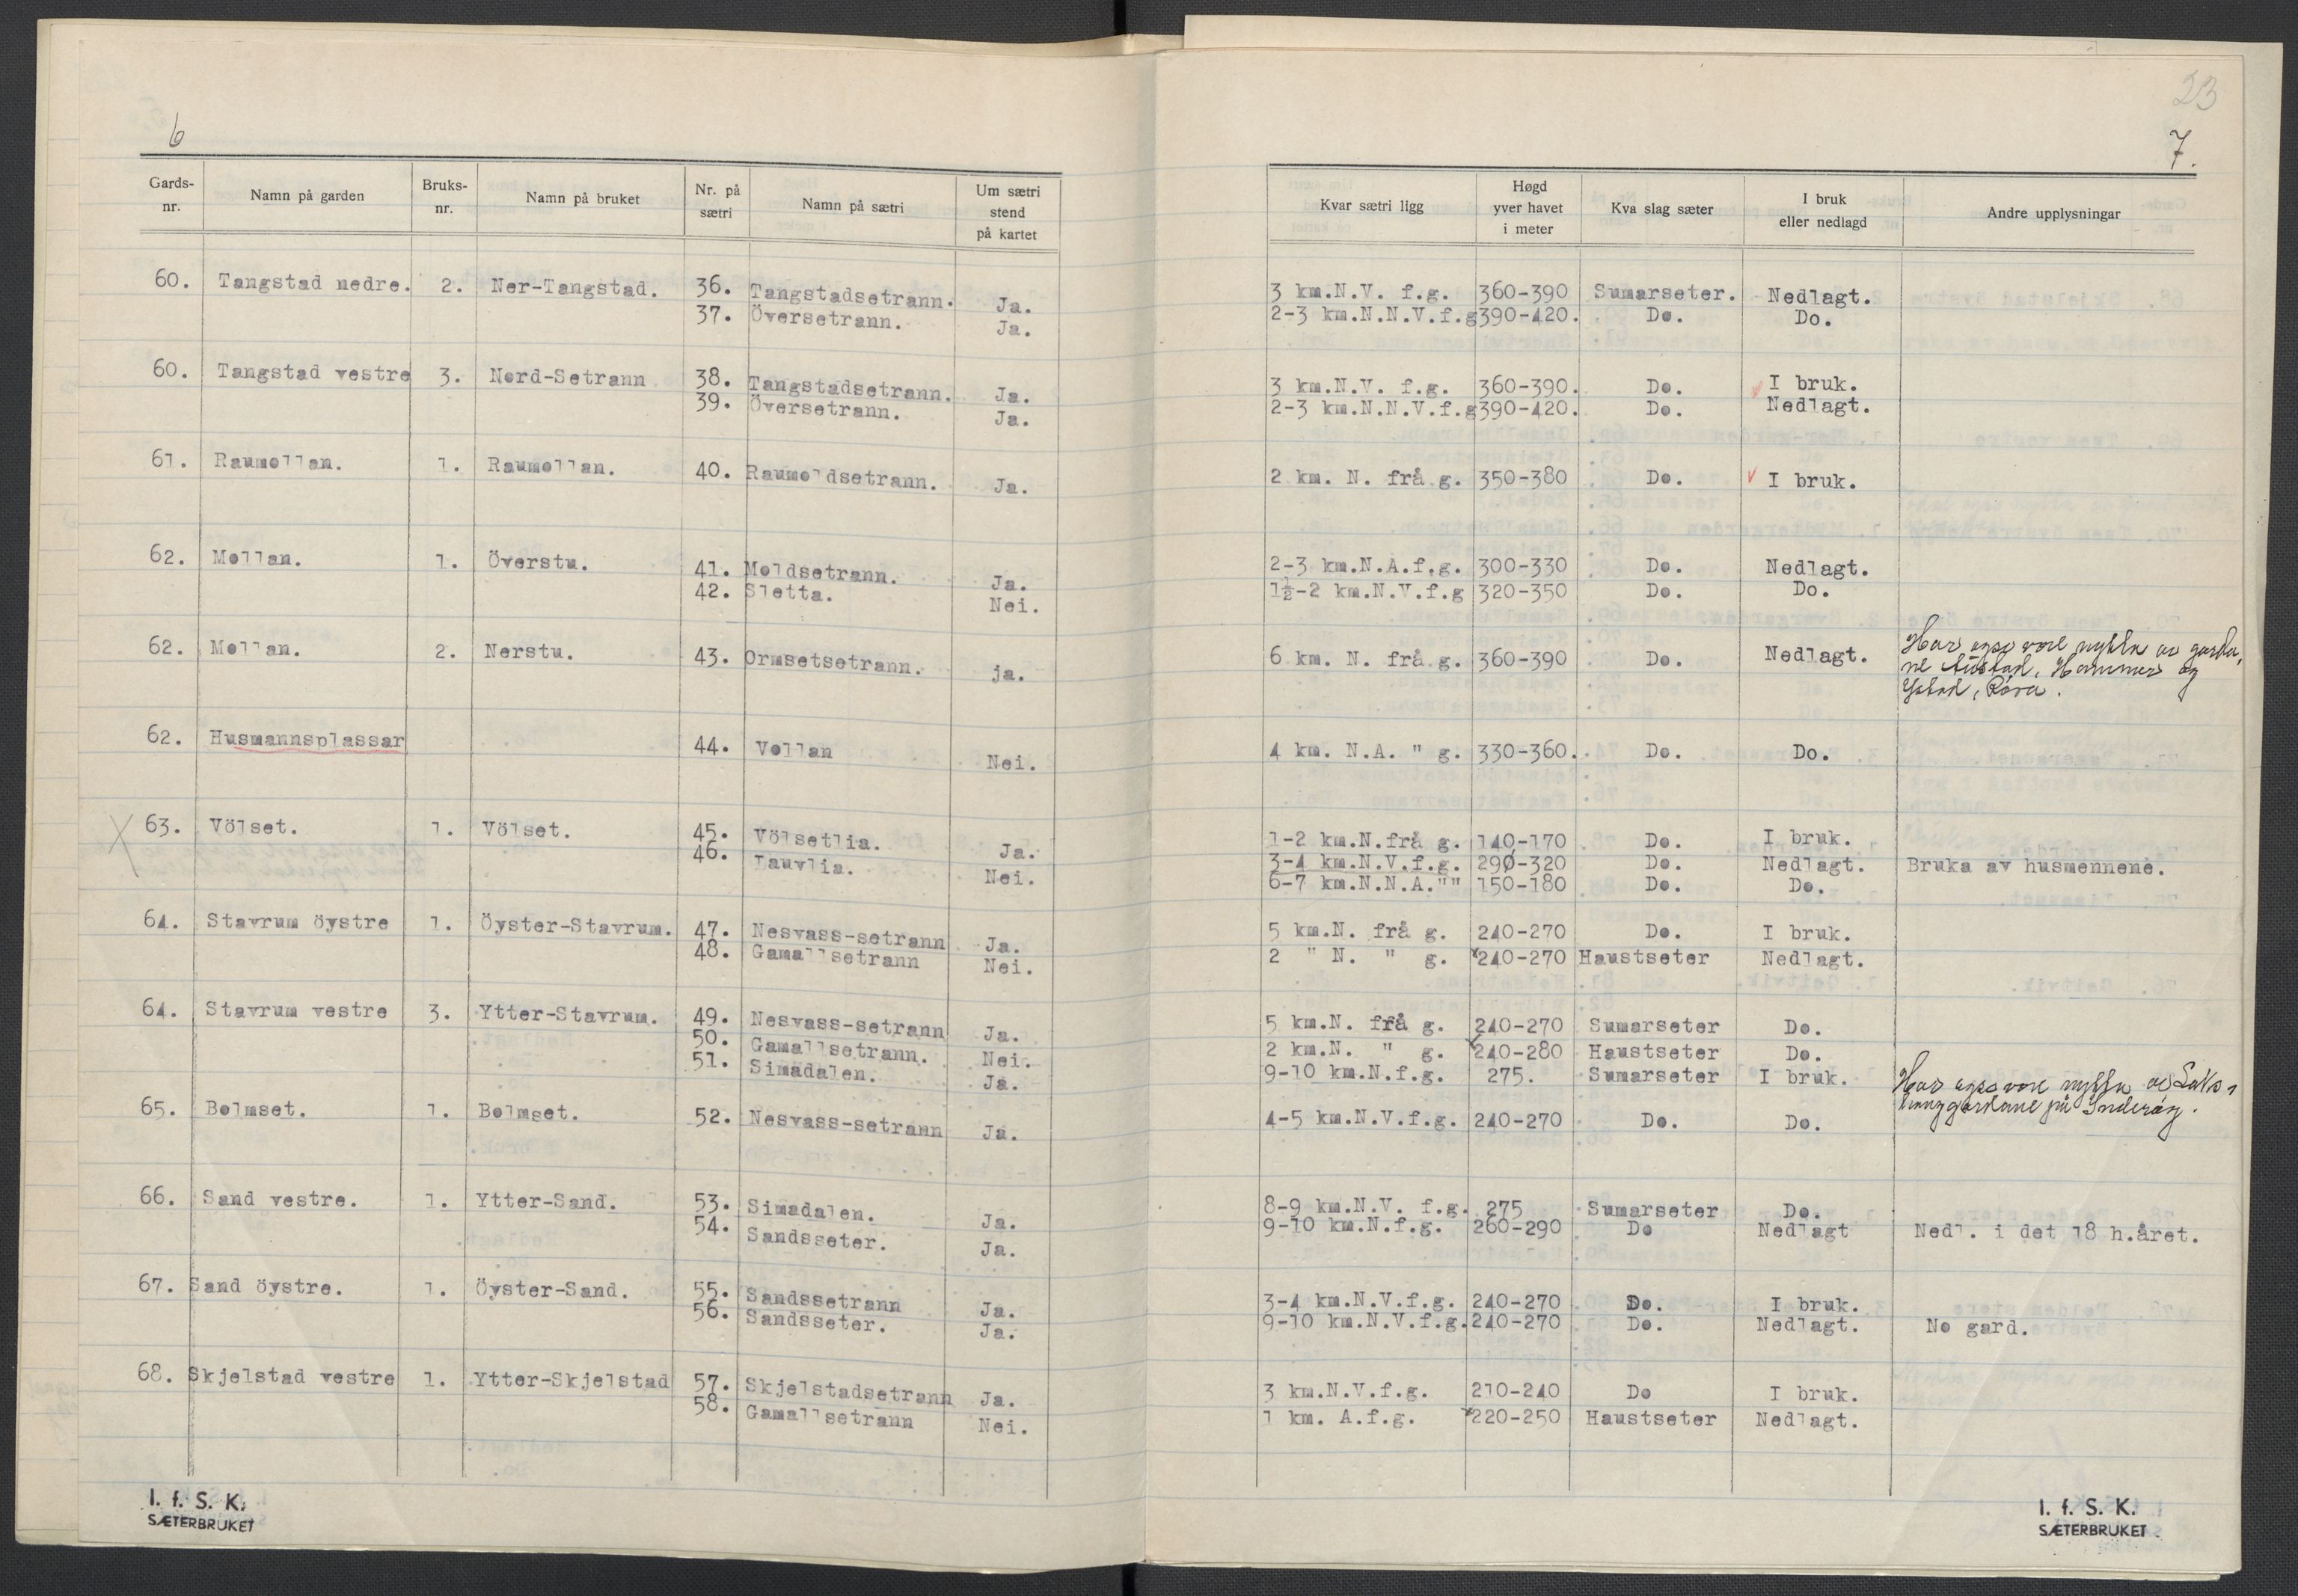 6
Gards-nr. Namn på garden Bruks-nr. Namn på bruket Nr. på sætri Namn på sætri Um sætri stend på kartet
60. Tangstad nedre. 2. Ner-Tangstad. 36. Tangstadsetrann. Ja.
37. Översetrann. Ja.
60. Tangstad vestre 3. Nord-Setrann 38. Tangstadsetrann. Ja.
39. Översetrann. Ja.
61. Raumollan. 1. Raumollan. 40. Raumoldsetrann. Ja.
62. Mollan. 1. Överstu. 41. Moldsetrann. Ja.
42. Sletta. Nei.
62. Mollan. 2. Nerstu. 43. Ormsetsetrann. ja.
62. Husmannsplassar 44. Vollan Nei.
63. Völset. 1. Völset. 45. Völsetlia. Ja.
46. Lauvlia. Nei.
64. Stavrum öystre 1. Öyster-Stavrum. 47. Nesvass-setrann Ja.
48. Gamallsetrann Nei.
64. Stavrum vestre 3. Ytter-Stavrum. 49. Nesvass-setrann Ja.
50. Gamallsetrann. Nei.
51. Simadalen. Ja.
65. Bolmset. 1. Bolmset. 52. Nesvass-setrann Ja.
66. Sand vestre. 1. Ytter-Sand. 53. Simadalen. Ja.
54. Sandsseter. Ja.
67. Sand öystre. 1. Öyster-Sand. 55. Sandssetrann Ja.
56. Sandsseter. Ja.
68. Skjelstad vestre 1. Ytter-Skjelstad 57. Skjelstadsetrann Ja.
58. Gamallsetrann Nei.
I. f. S. K.
SÆTERBRUKET
23
7.
Kvar sætri ligg Høgd yver havet i meter Kva slag sæter I bruk eller nedlagd Andre upplysningar
3 km.N.V. f.g. 360-390 Sumarseter. Nedlagt.
2-3 km.N.N.V.f.g 390-420. Do. Do.
3 km.N.V. f.g. 360-390. Do. I bruk.
2-3 km.N.N.V.f.g 390-420. Do. Nedlagt.
2 km. N. frå g. 350-380 Do. I bruk.
2-3 km.N.A.f.g. 300-330 Do. Nedlagt.
1½-2 km.N.V.f.g 320-350 Do. Do.
6 km. N. frå g. 360-390 Do. Nedlagt. Har også vore nytta av garda,
ne Austad, Hammer og
Ystad, Røra.
4 km. N.A. " g. 330-360. Do. Do.
1-2 km.N.frå g. 140-170 Do. I bruk.
3-4 km.N.V.f.g. 290-320 Do. Nedlagt. Bruka av husmennene.
6-7 km.N.N.A."" 150-180 Do. Do.
5 km.N. frå g. 240-270 Do. I bruk.
2 " N. " g. 240-270 Haustseter Nedlagt.
5 km.N. frå g. 240-270 Sumarseter Do.
2 km.N. " g. 240-280 Haustseter Do.
9-10 km.N.f.g. 275. Sumarseter I bruk. Har også vore nytta av
gardane på Inderøy.
4-5 km.N.V.f.g. 240-270 Do. Do.
8-9 km.N.V. f.g. 275 Sumarseter Do.
9-10 km.N.f.g. 260-290 Do Nedlagt Nedl. i det 18 h.året.
3-4 km.N.V.f.g. 240-270 Do. I bruk.
9-10 km.N.V.f.g. 240-270 Do. Nedlagt. No gard.
3 km.N.V.f.g. 210-240 Do I bruk.
1 km. A.f.g. 220-250 Haustseter Nedlagt.
I. f. S. K.
SÆTERBRUKET